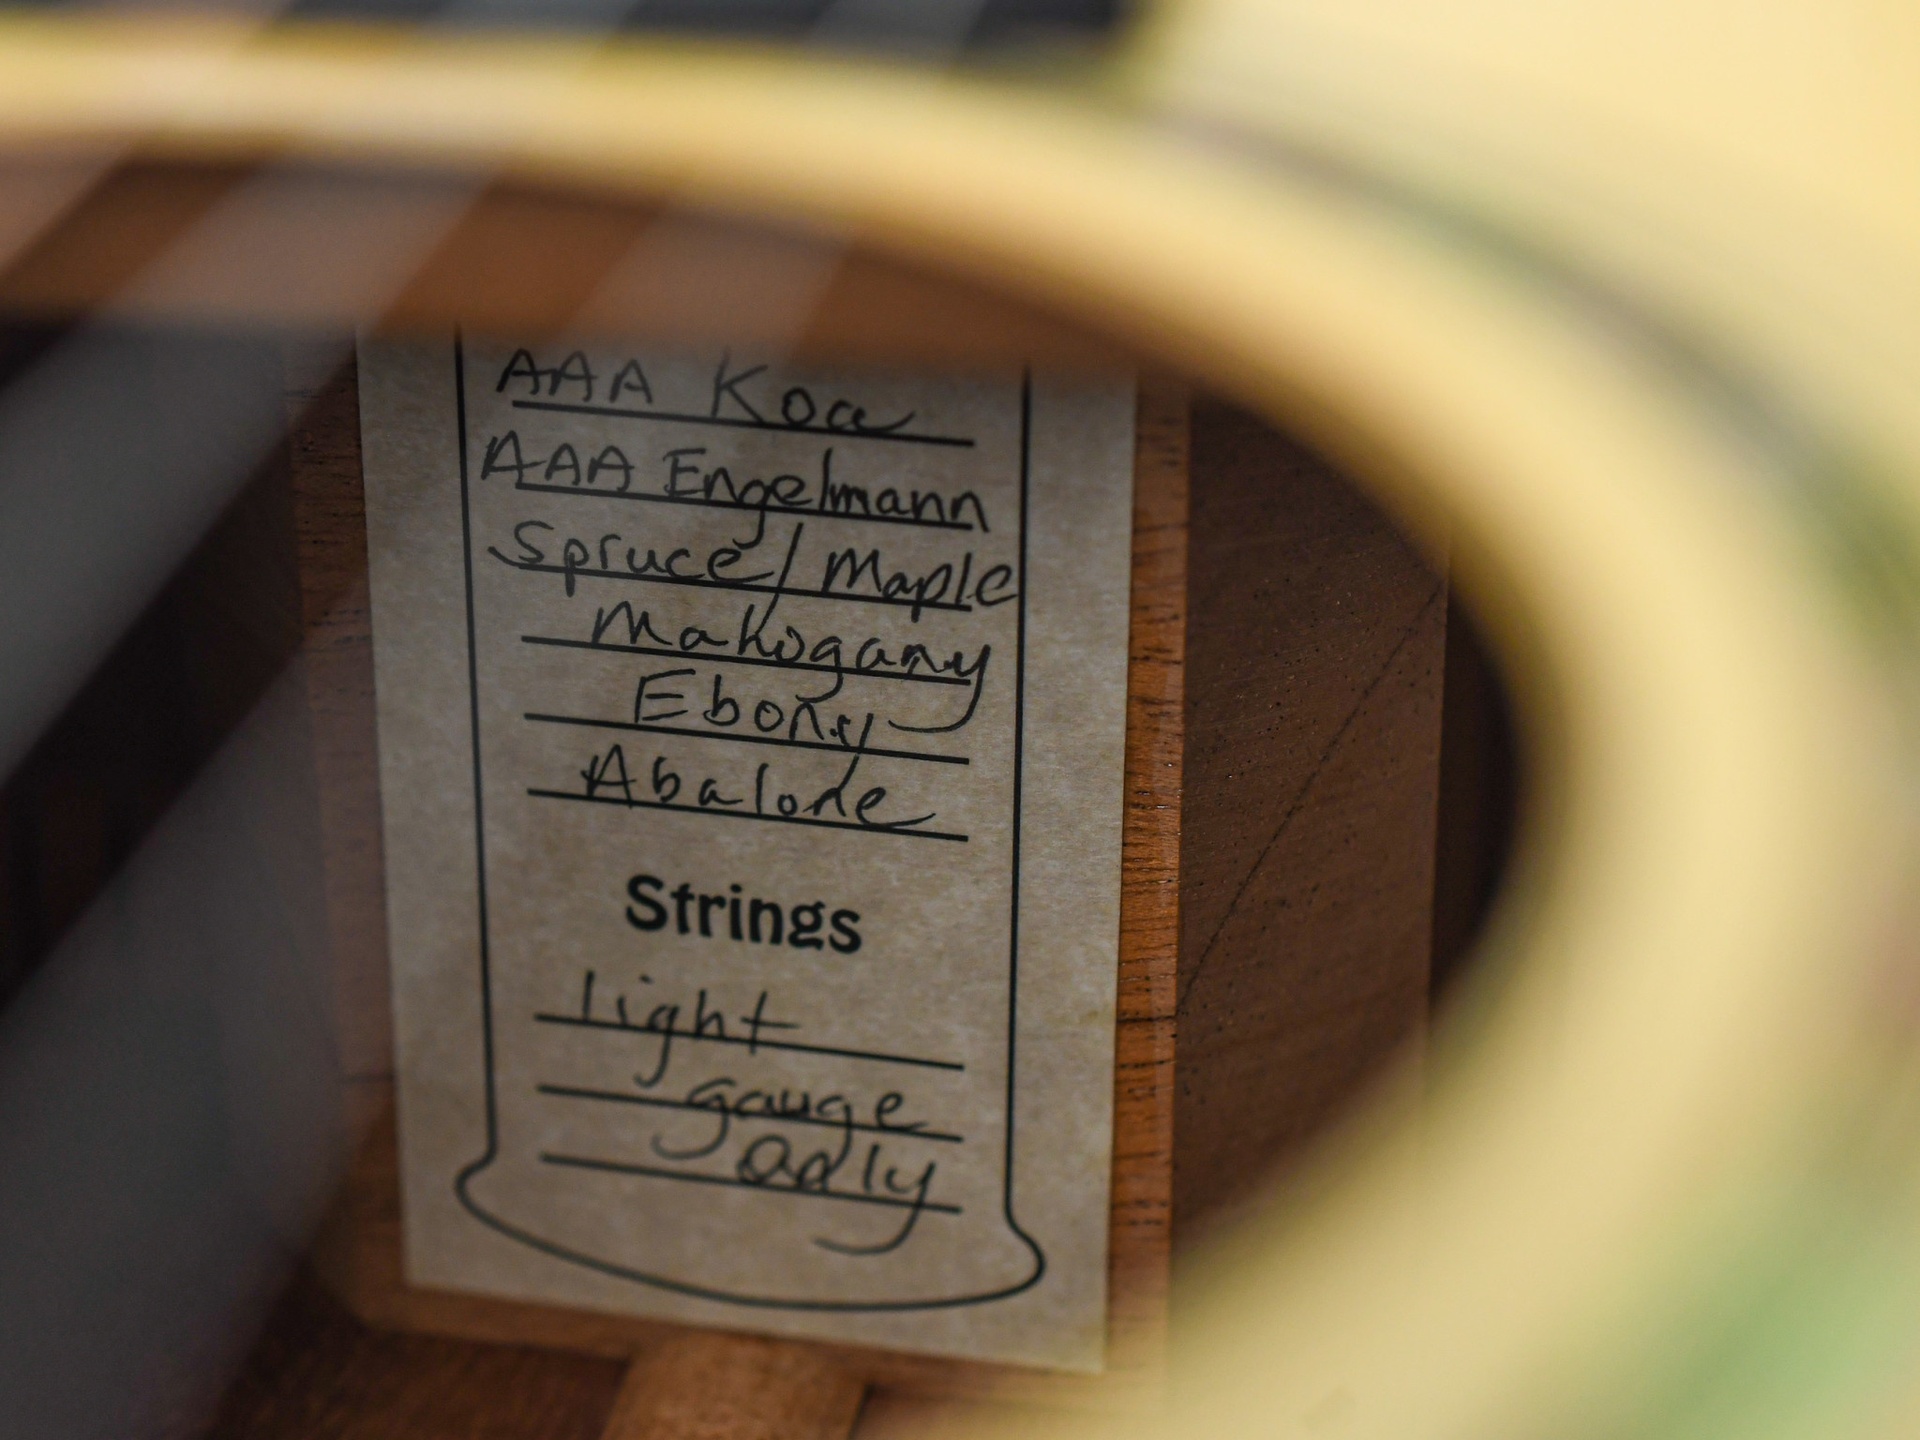 AAA Koa
AAA Engelmann
Spruce/Maple
Mahogany
Ebony
Abalone
Strings
light
gauge
Only